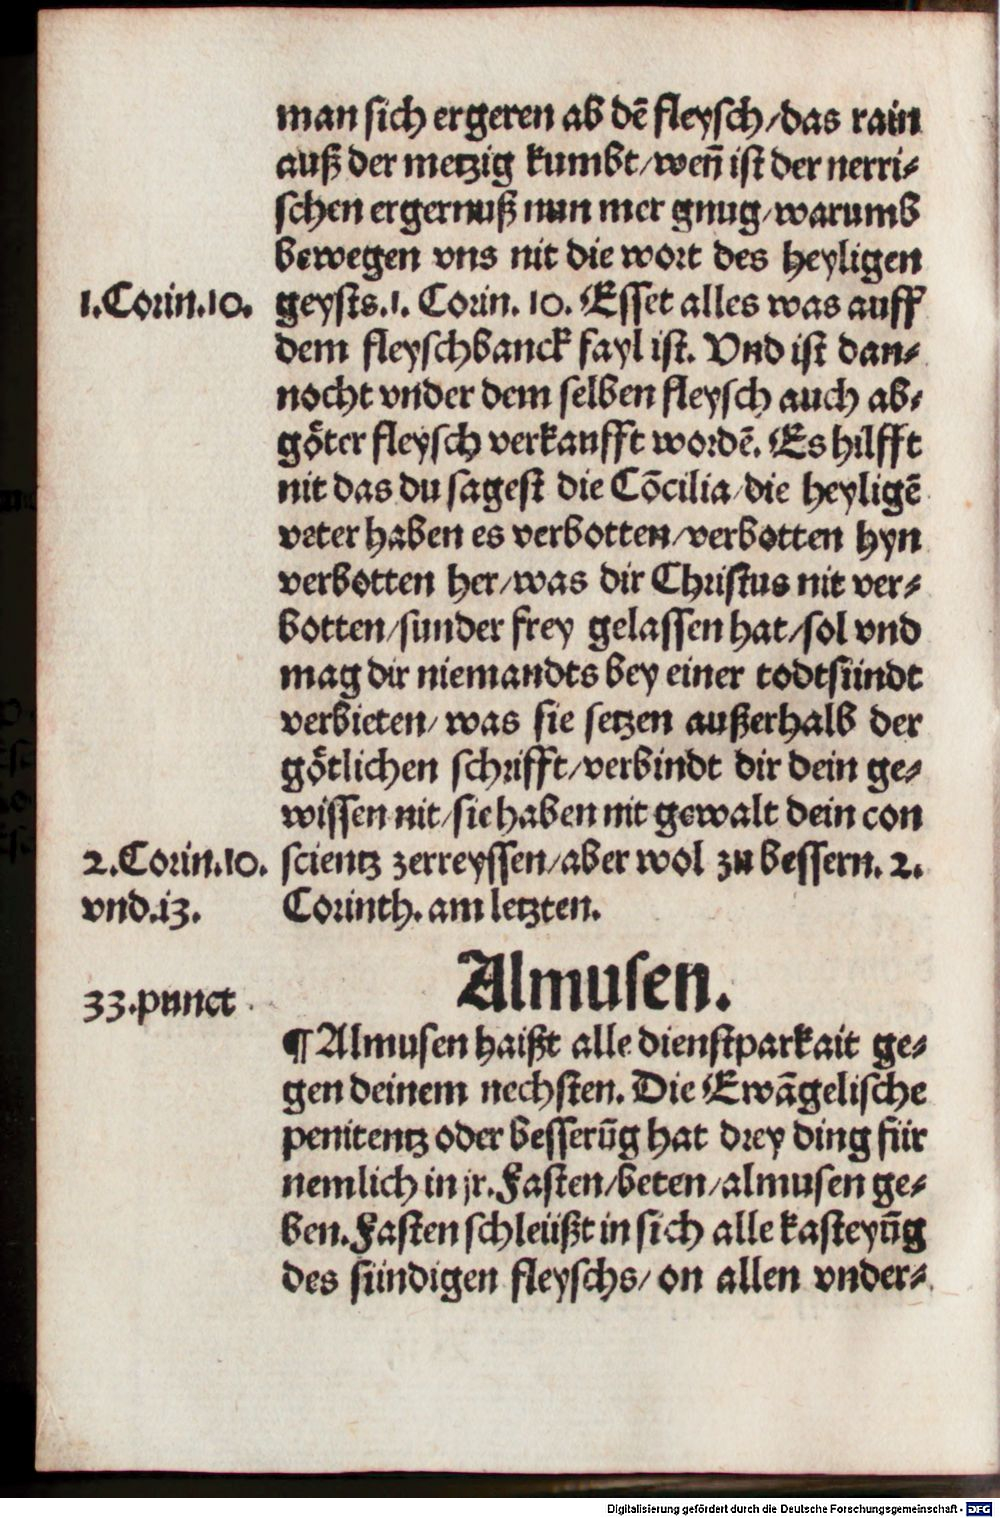 man sich ergeren ab dē fleysch/das rain
auß der metzig kumbt/weñ ist der nerri⸗
schen ergernuß nun mer gnug/warumb
bewegen vns nit die wort des heyligen
1.Corin.10. geysts.1. Corin. 10. Esset alles was auff
dem fleyschbanck fayl ist. Vnd ist dan⸗
nocht vnder dem selben fleysch auch ab⸗
goͤter fleysch verkaufft wordē. Es hilfft
nit das du sagest die Cōcilia/die heyligē
veter haben es verbotten/verbotten hyn
verbotten her/was dir Christus nit ver⸗
botten/sunder frey gelassen hat/sol vnd
mag dir niemandts bey einer todtsündt
verbieten/was sie setzen außerhalb der
goͤtlichen schrifft/verbindt dir dein ge⸗
wissen nit/sie haben nit gewalt dein con
2.Corin.10. scientz zerreyssen/aber wol zu bessern. 2.
vnd.13. Corinth. am letzten.
Almusen.
33.punct
¶ Almusen haißt alle dienstparkait ge⸗
gen deinem nechsten. Die Ewāgelische
penitentz oder besserūg hat drey ding für
nemlich in jr. Fasten/beten/almusen ge⸗
ben. Fasten schleüßt in sich alle kasteyūg
des sündigen fleyschs/on allen vnder⸗
Digitalisierung gefördert durch die Deutsche Forschungsgemeinschaft - DFG